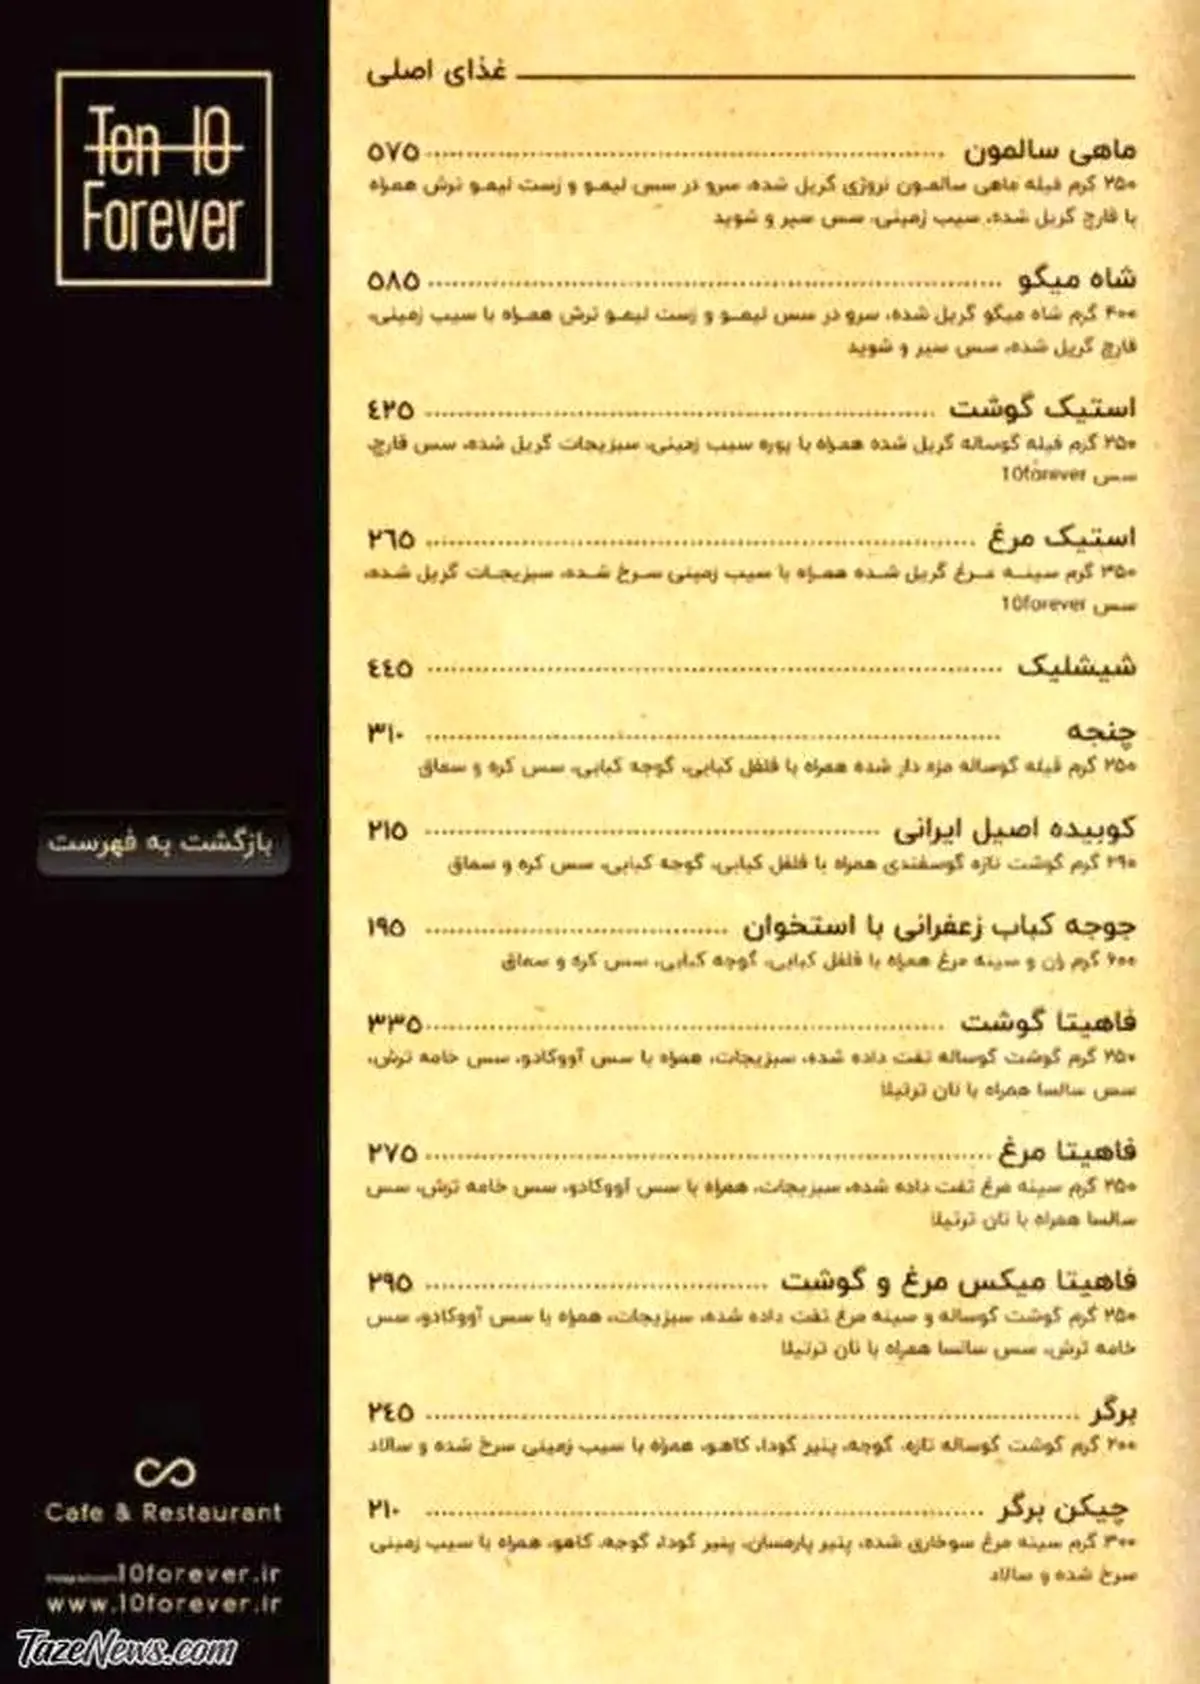 Ten 10
Forever
غذای اصلی
ماهی سالمون ۵۷۵
۲۵۰ گرم فیله ماهی سالمون نروژی گریل شده، سرو در سس لیمو و زست لیمو ترش همراه
با قارچ گریل شده، سیب زمینی، سس سیر و شوید
شاه میگو ۵۸۵
۴۰۰ گرم شاه میگو گریل شده، سرو در سس لیمو و زست لیمو ترش همراه با سیب زمینی،
قارچ گریل شده، سس سیر و شوید
استیک گوشت ٤۲۵
۲۵۰ گرم فیله گوساله گریل شده همراه با پوره سیب زمینی، سبزیجات گریل شده، سس قارچ،
سس 10forever
استیک مرغ ۲٦۵
۳۵۰ گرم سینه مرغ گریل شده همراه با سیب زمینی سرخ شده، سبزیجات گریل شده،
سس 10forever
شیشلیک ٤٤۵
چنجه ۳۱۰
۲۵۰ گرم فیله گوساله مزه دار شده همراه با فلفل کبابی، گوجه کبابی، سس کره و سماق
کوبیده اصیل ایرانی ۲۱۵
۲۹۰ گرم گوشت تازه گوسفندی همراه با فلفل کبابی، گوجه کبابی، سس کره و سماق
جوجه کباب زعفرانی با استخوان ۱۹۵
۶۰۰ گرم ران و سینه مرغ همراه با فلفل کبابی، گوجه کبابی، سس کره و سماق
فاهیتا گوشت ۳۳۵
۲۵۰ گرم گوشت گوساله تفت داده شده، سبزیجات، همراه با سس آووکادو، سس خامه ترش،
سس سالسا همراه با نان ترتیلا
فاهیتا مرغ ۲۷۵
۲۵۰ گرم سینه مرغ تفت داده شده، سبزیجات، همراه با سس آووکادو، سس خامه ترش، سس
سالسا همراه با نان ترتیلا
فاهیتا میکس مرغ و گوشت ۲۹۵
۲۵۰ گرم گوشت گوساله و سینه مرغ تفت داده شده، سبزیجات، همراه با سس آووکادو، سس
خامه ترش، سس سالسا همراه با نان ترتیلا
برگر ۲٤۵
۲۰۰ گرم گوشت گوساله تازه، گوجه، پنیر گودا، کاهو، همراه با سیب زمینی سرخ شده و سالاد
چیکن برگر ۲۱۰
۳۰۰ گرم سینه مرغ سوخاری شده، پنیر پارمسان، پنیر گودا، گوجه، کاهو، همراه با سیب زمینی
سرخ شده و سالاد
بازگشت به فهرست
Cafe & Restaurant
10forever.ir
www.10forever.ir
TazeNews.com